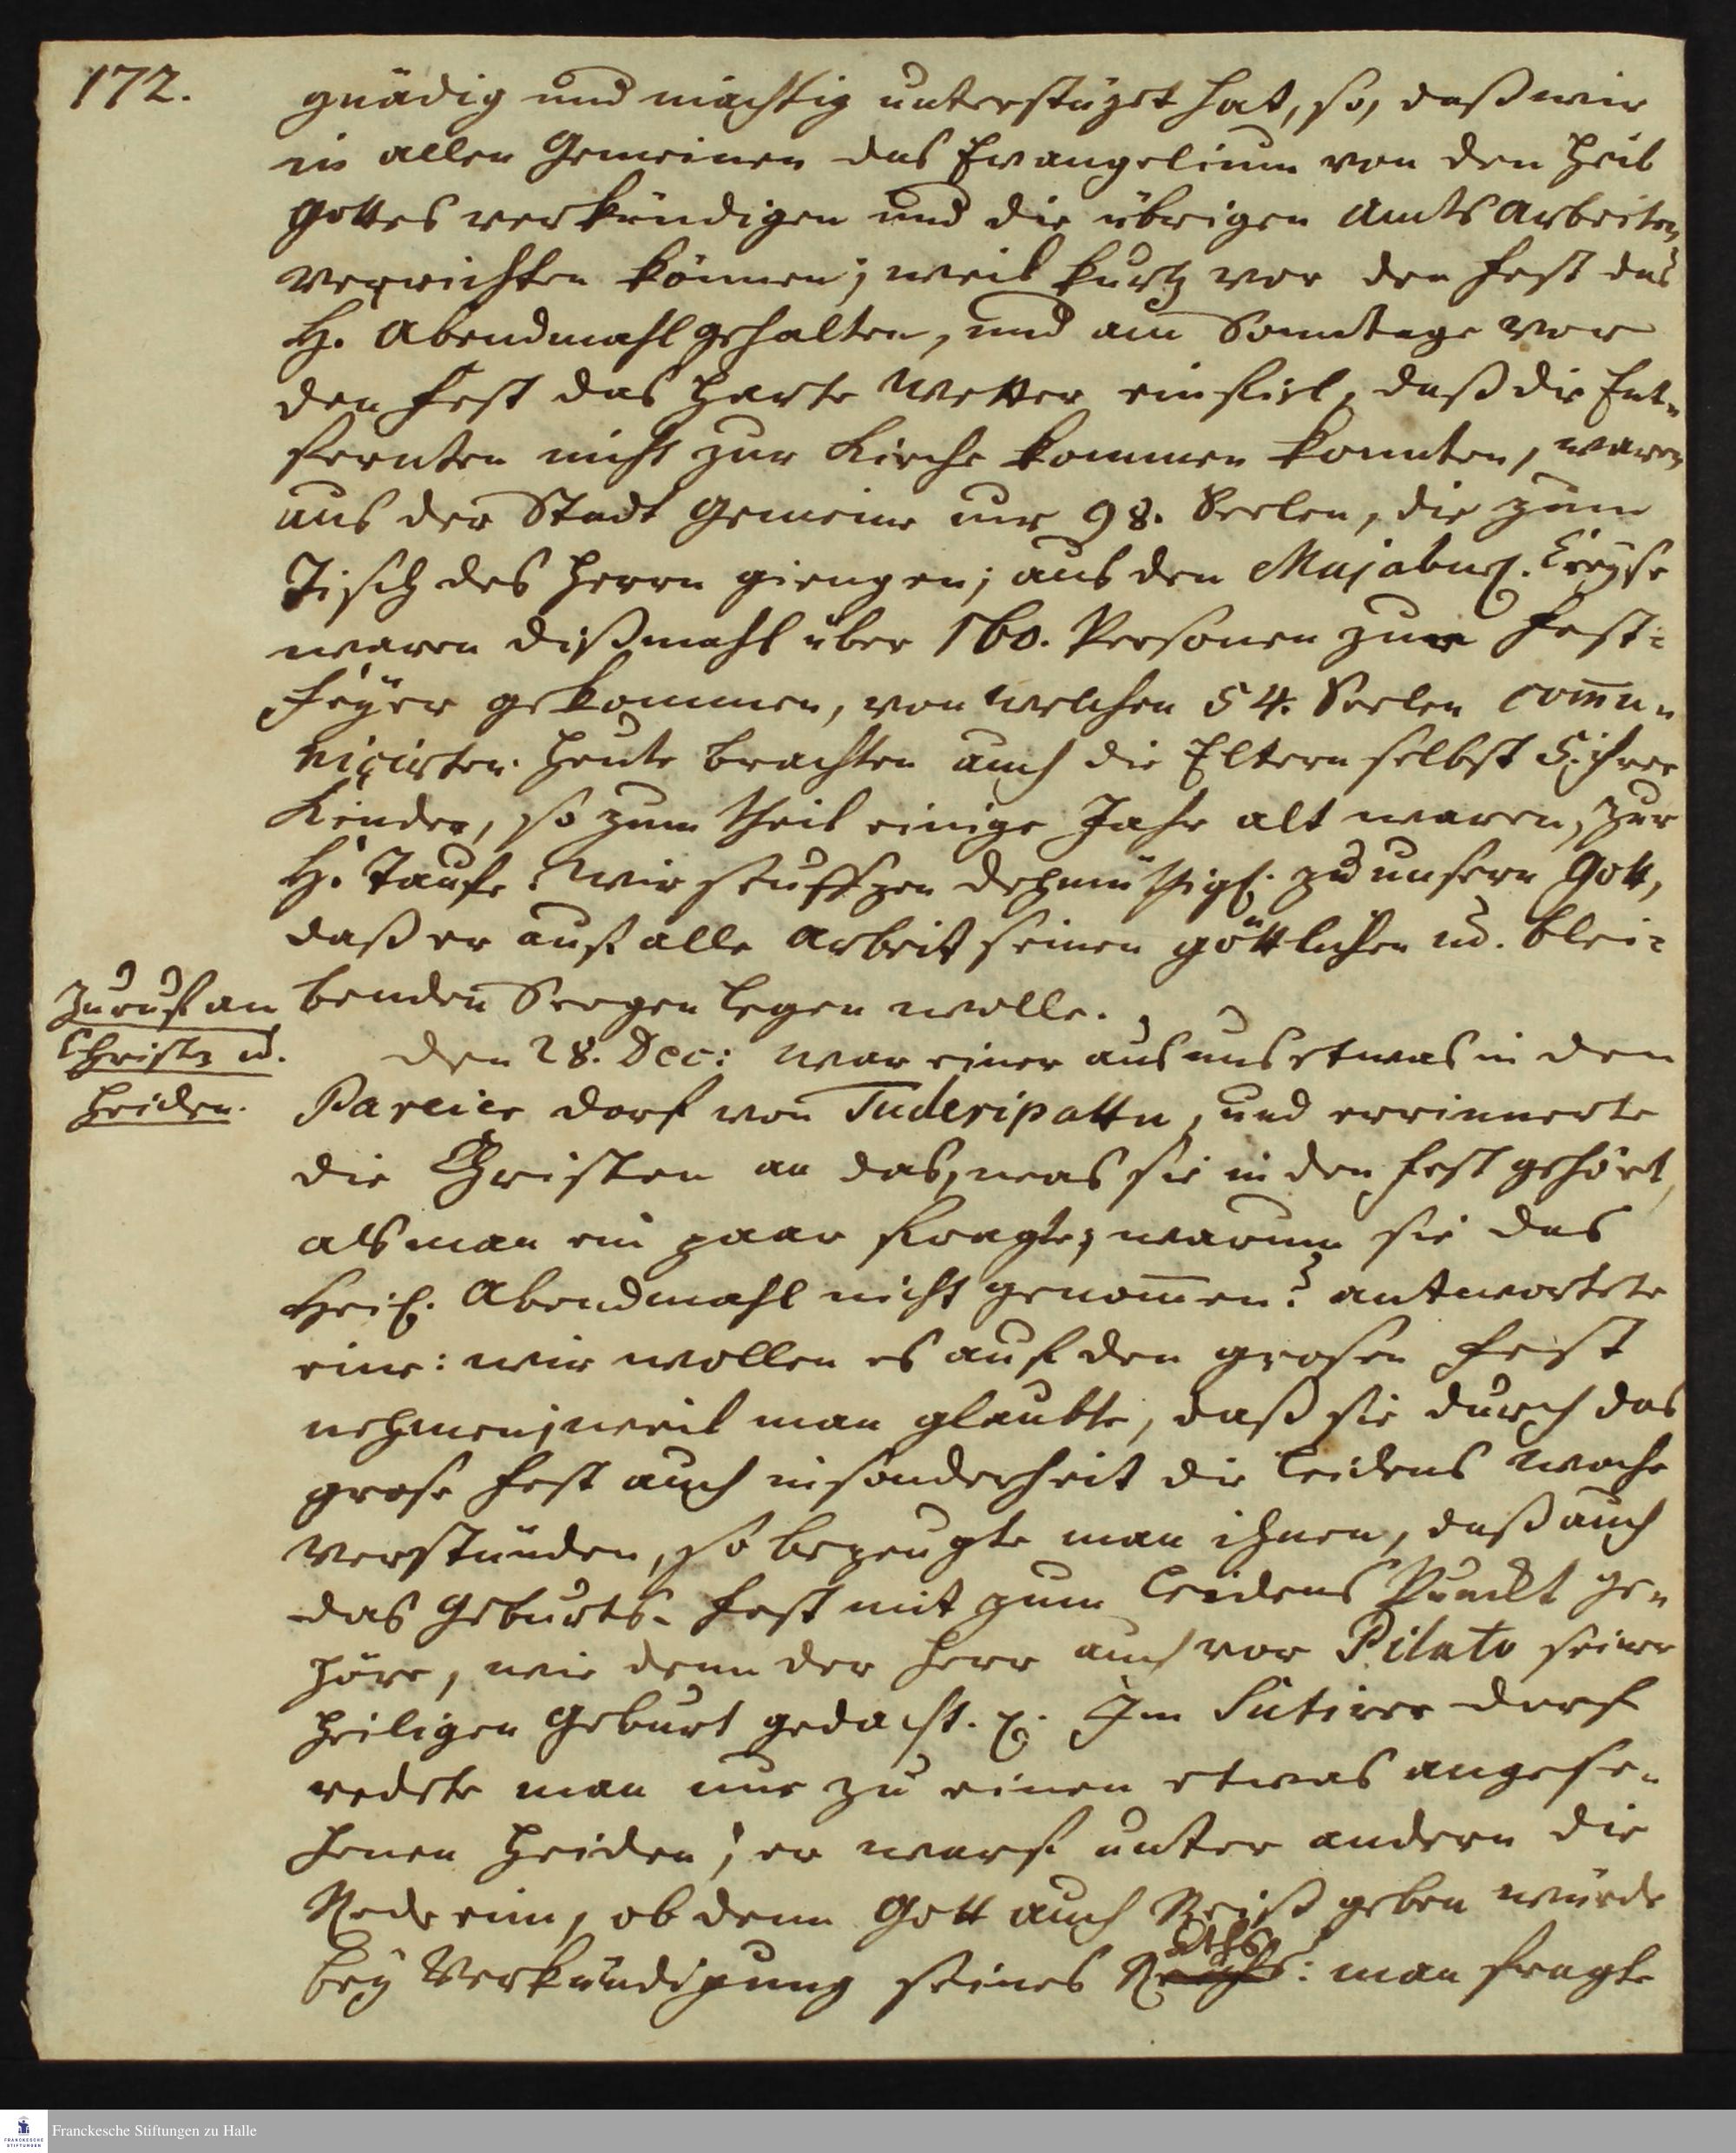 172.
gnädig und mächtig unterstüzet hat, so, daß wir
in allen Gemeinen das Evangelium von den Heil
Gottes verkündigen und die übrigen Amts Arbeiten
verrichten können; weil kurtz vor den Fest das
H. Abendmahl gehalten, und am Sonntage vor
den Fest das harte Wetter einfiel, daß die Ent-
fernten nicht zur Kirche kommen konnten, waren
aus der Stadt Gemeine nur 98. Seelen, die zum
Tisch des Herrn giengen; aus den Majabur. Creyse
waren dißmahl über 160. Personen zur Fest-
Feyer gekommen, von welchen 54. Seelen com̅u-
nicirten. Heute brachten auch die Eltern selbst 5. ihrer
Kinder, so zum theil einige Jahr alt waren, zur
H. Taufe. Wir seuffzen dehmüthigl. zu unsern Gott,
daß er auf alle Arbeit seinen göttlichen ud. blei-
Zuruf an
Christen ud.
Heiden.
benden Seegen legen wolle.
Den 28. Dec: war einer aus uns etwas in den
Pareier dorf von Tuderipattu, und errinnerte
die Christen an das, was sie in den Fest gehört,
als man ein paar fragte; warum sie das
Heil. Abendmahl nicht genom̅en? antwortete
eine: wir wollen es auf den grosen Fest
nehmen; weil man glaubte, daß sie durch das
grose Fest auch insonderheit die Leidens Woche
verstünden, so bezeugte man ihnen, daß auch
das Geburts-Fest mit zum Leidens Punckt ge-
höre, wie denn der Herr auch vor Pilato seiner
heiligen Geburt gedacht. p. Im Sutirer dorf
redete man nur zu einen etwas angese-
henen Heiden; er warf unter andern die
Rede ein, ob denn Gott auch Reiß geben würde
bey Verkündigung seines : man fragte
Franckesche Stiftungen zu Halle